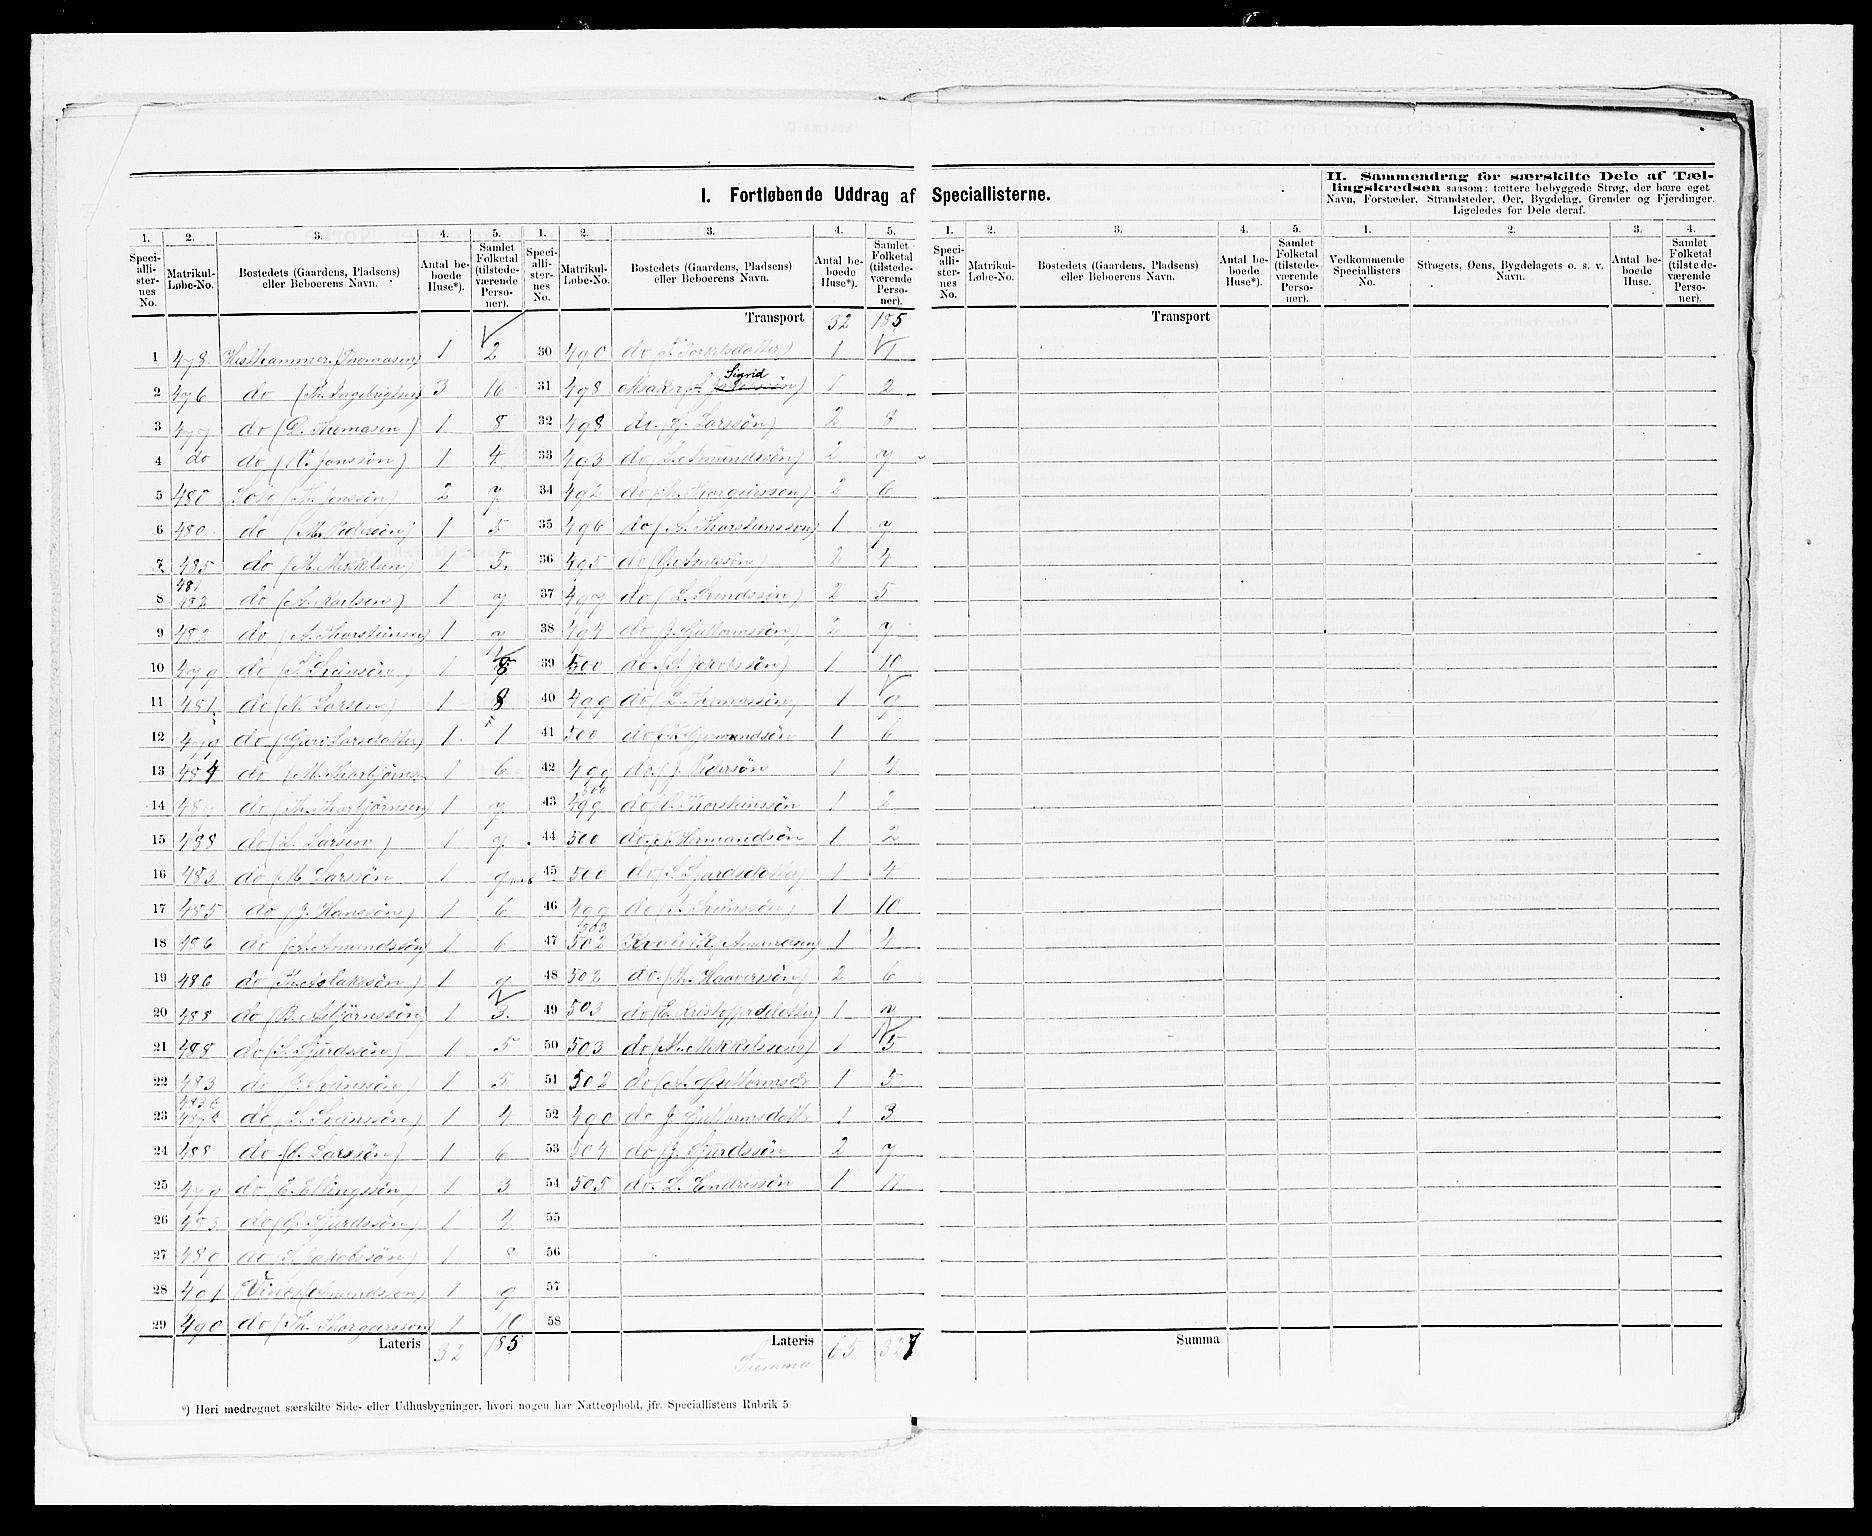 I. Fortløbende Uddrag af Speciallisterne.
II. Sammendrag for særskilte Dele af Tæl-
lingskredsen saasom: tættere bebyggede Strøg, der bære eget
Navn, Forstæder, Strandsteder, Øer, Bygdelag, Grender og Fjerdinger.
Ligeledes for Dele deraf.
1. 2. 3. 4. 5. 1. 2. 3. 4. 5. 1. 2. 3. 4. 5. 1. 2. 3. 4.
Speci-alli-ster-nes No. Matrikul-Løbe-No. Bostedets (Gaardens, Pladsens) eller Beboerens Navn. Antal be-boede Huse*). Samlet Folketal (tilstede-værende Perso-ner).
Speci-alli-ster-nes No. Matrikul-Løbe-No. Bostedets (Gaardens, Pladsens) eller Beboerens Navn. Antal be-boede Huse*). Samlet Folketal (tilstede-værende Perso-ner).
Speci-alli-ster-nes No. Matrikul-Løbe-No. Bostedets (Gaardens, Pladsens) eller Beboerens Navn. Antal be-boede Huse*). Samlet Folketal (tilstede-værende Perso-ner).
Vedkommende Speciallisters No. Strøgets, Øens, Bygdelagets o. s. v. Navn. Antal be-boede Huse. Samlet Folketal (tilstede-værende Perso-ner).
1 478 Hesthammer (Thomasen) 1 2
2 476 do (Th. Ingebrigtsen) 3 16
3 477 do (D. Thomasen) 1 8
4 do do (V. Jonssøn) 1 4
5 480 (Th. Jonssøn) 2 7
6 480 do (M. Pedersøn) 1 5
7 485 do (M. Mikkelsen) 1 5
8 481 482 do (A. Karlsen) 1 7
9 482 do (A. Thorsteinsen) 1 7
10 479 do (Sveinsøn) 1
11 481 do (N. Larsen) 1 8
12 479 do (Guri Larsdatter) 1 1
13 484 do (M. Thorbjørns 1 6
14 487 do (Th. Thorbjørnsen) 1 7
15 488 do (L. Larsen) 1 7
16 483 do (M. Larssøn 1 9
17 485 do (J. Hanssøn) 1 6
18 486 do (A. Amundssøn) 1 6
19 486 do (Th. Aslakssøn) 1 9
20 488 do (B. Asbjørnssøn) 1 3
21 488 do (S. Sjurdssøn) 1 5
22 483 do (Sveinssøn) 1 5
23 do (L. Sveinssøn) 1 4
24 488 do (O. Larssøn) 1 6
25 479 do (E. Ellingssøn) 1 3
26 483 do (Sjurdssøn) 1 4
27 489 do (Jakobssøn) 1 8
28 491 Vines (Amundsson) 1 9
29 490 do (Th. Thorgeirsson) 1 10
Lateris 32 185
Transport 32 185
30 490 do (Torkelsdatter) 1 1
31 498 Aksaker Sigrid 1 2
32 498 do (J. Larssøn) 2 8
33 493 do (L. Amundssøn) 2 7
34 492 do (Th. Thorgeirssen) 2 6
35 496 do (A. Thorsteinssøn) 1 7
36 495 do 2 4
37 497 do (L. Svendssøn) 2 5
38 494 do (J. Guttormssøn) 2 7
39 500 do (S. Jakobssøn) 1 10
40 499 do (L. Thomassøn) 1 9
41 500 do 1 6
42 499 do (J. Pedersøn 1 4
43 500 499 do O. Thorsteinssøn 1 2
44 500 do 1 2
45 500 do (S. Sjurdsdatter) 1 4
46 499 do (Sveinssøn) 1 10
47 503 502 Kvalvik Amundsen) 1 4
48 502 do (Th. Haaverssøn) 2 6
49 503 do (E. Kristoffersdatter) 1 7
50 503 do (M. Mikkelssøn) 1 5
51 502 do (A. Guttormsdr 1 5
52 490 do J. Guttormsdatter 1 3
53 504 do (J. Sjurdssøn 2 7
54 505 do L. Endressøn 1 11
55
56
57
58
Lateris
Summa 65 327
Transport
Summa
*) Heri medregnet særskilte Side- eller Udhusbygninger, hvori nogen har Natteophold, jfr. Speciallistens Rubrik 5.